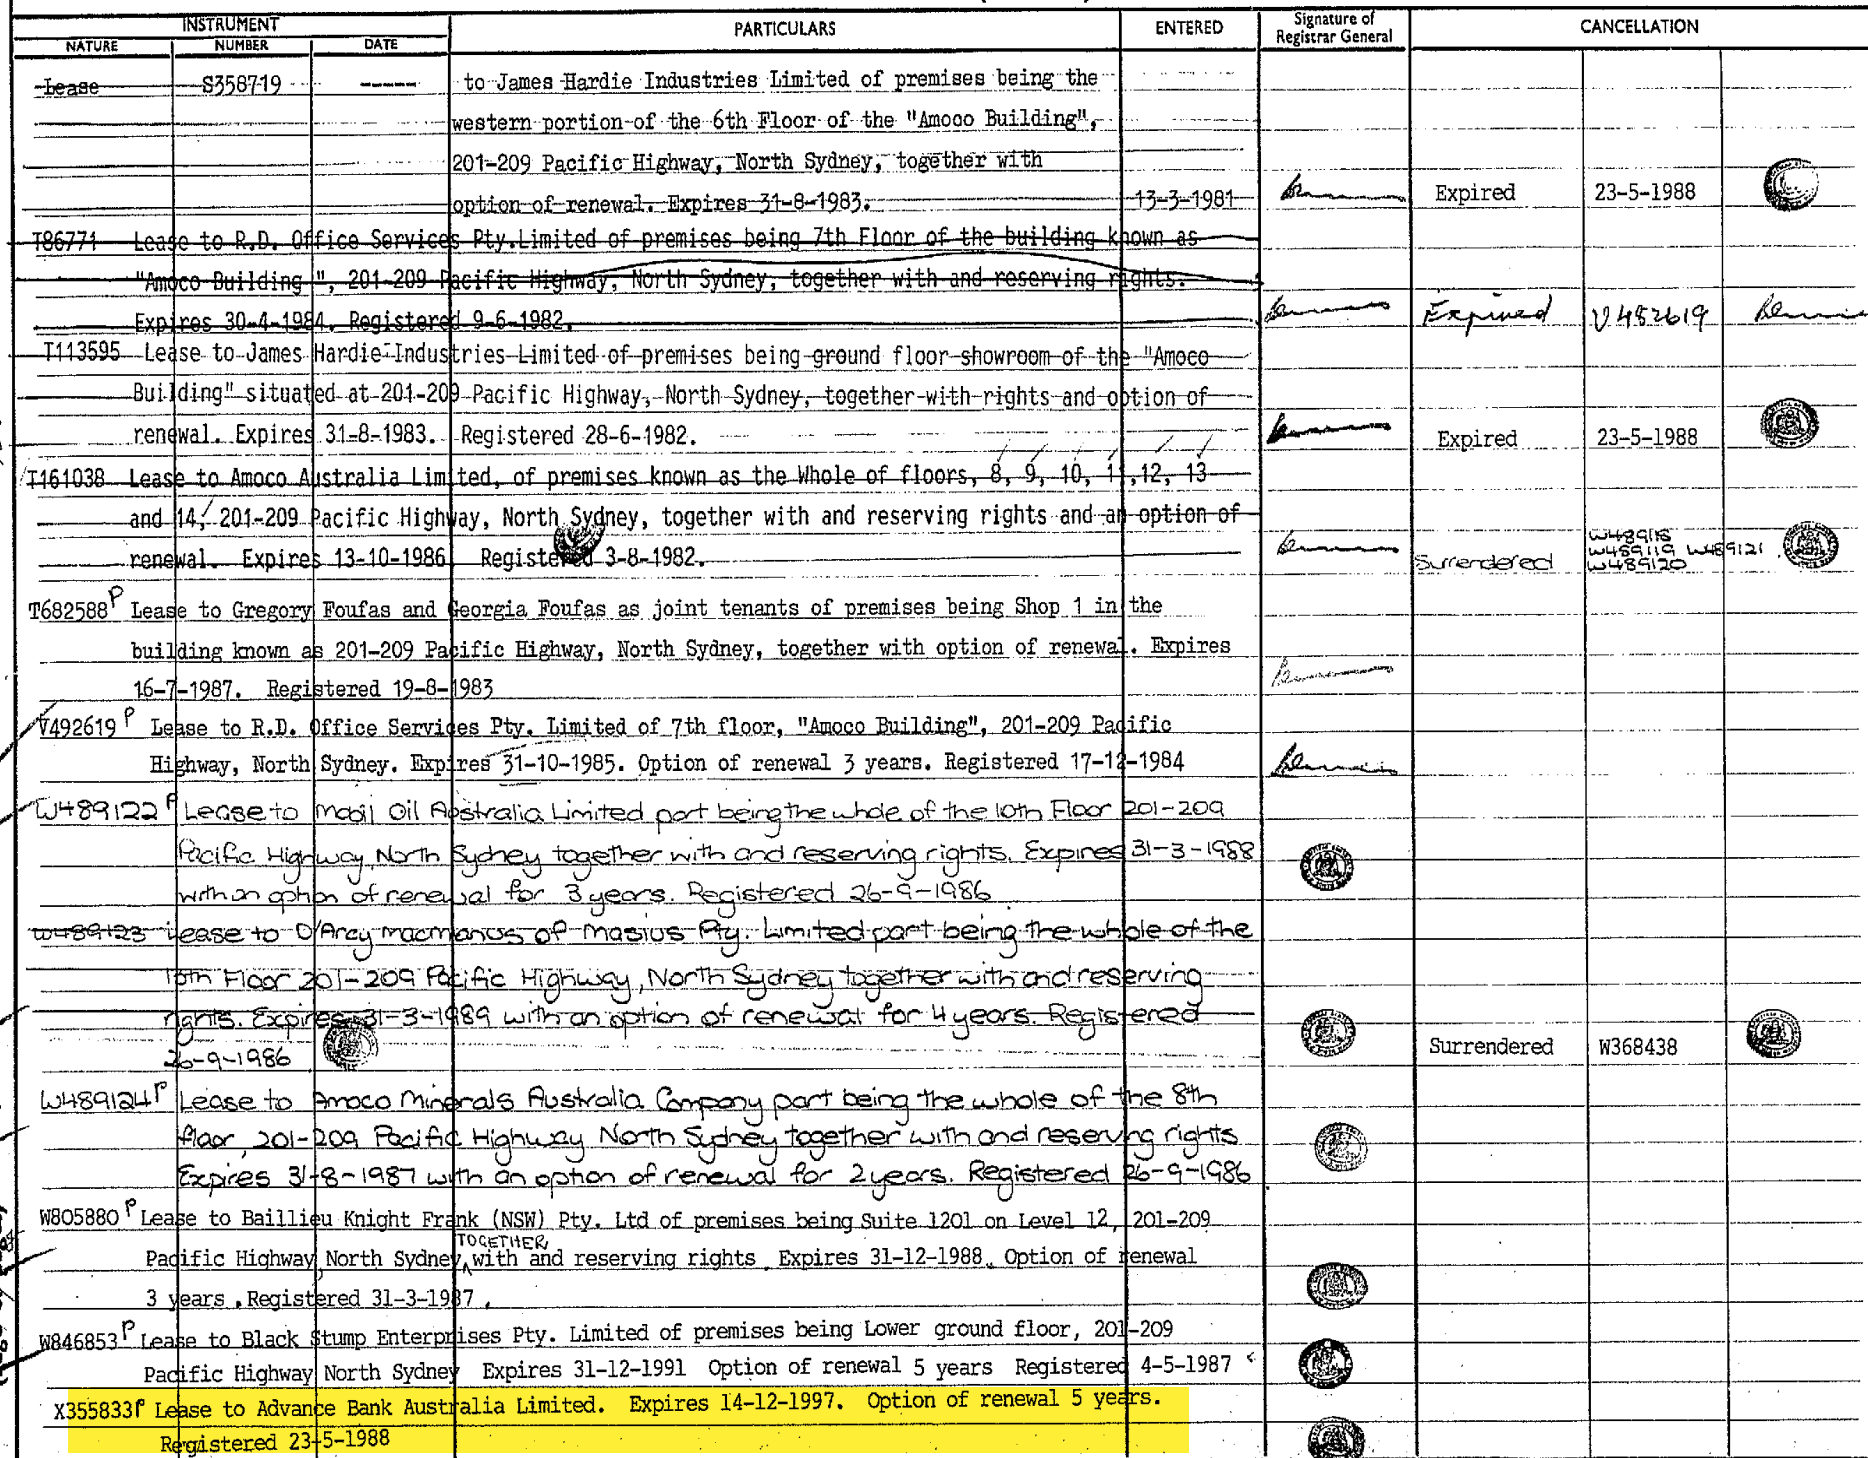 INSTRUMENT PARTICULARS ENTERED Signature of Registrar General CANCELLATION
NATURE NUMBER DATE
Lease S358719 ----- to James Hardie Industries Limited of premises being the
western portion of the 6th Floor of the "Amoco Building",
201-209 Pacific Highway, North Sydney, together with
option of renewal. Expires 31-8-1983. 13-3-1981 Expired 23-5-1988
T86771 Lease to R.D. Office Services Pty.Limited of premises being 7th Floor of the building known as
"Amoco Building ", 201-209 Pacific Highway, North Sydney, together with and reserving rights.
Expires 30-4-1984. Registered 9-6-1982. Expired V482619
T113595 Lease to James Hardie Industries Limited of premises being ground floor showroom of the "Amoco
Building" situated at 201-209 Pacific Highway, North Sydney, together with rights and option of
renewal. Expires 31-8-1983. Registered 28-6-1982. Expired 23-5-1988
T161038 Lease to Amoco Australia Limited, of premises known as the Whole of floors, 8, 9, 10, 11,12, 13
and 14, 201-209 Pacific Highway, North Sydney, together with and reserving rights and an option of
renewal. Expires 13-10-1986 Registered 3-8-1982. Surrendered W489118 W489119 W489121 W489120
T682588 P Lease to Gregory Foufas and Georgia Foufas as joint tenants of premises being Shop 1 in the
building known as 201-209 Pacific Highway, North Sydney, together with option of renewal. Expires
16-7-1987. Registered 19-8-1983
V492619 P Lease to R.D. Office Services Pty. Limited of 7th floor, "Amoco Building", 201-209 Pacific
Highway, North Sydney. Expires 31-10-1985. Option of renewal 3 years. Registered 17-12-1984
W489122 P Lease to Mobil Oil Australia Limited part being the whole of the 10th Floor 201-209
Pacific Highway, North Sydney together with and reserving rights. Expires 31-3-1988
with an option of renewal for 3 years. Registered 26-9-1986
W489123 Lease to D'Arcy Macmanus of Masius Pty. Limited part being the whole of the
Floor 201-209 Pacific Highway, North Sydney together with and reserving
rights. Expires 31-3-1989 with an option of renewal for 4 years. Registered
26-9-1986 Surrendered W368438
W489124 P Lease to Amoco Minerals Australia Company part being the whole of the 8th
floor, 201-209 Pacific Highway North Sydney together with and reserving rights
Expires 31-8-1987 with an option of renewal for 2 years. Registered 26-9-1986
W805880 P Lease to Baillieu Knight Frank (NSW) Pty. Ltd of premises being Suite 1201 on Level 12, 201-209
Pacific Highway, North Sydney, TOGETHER with and reserving rights. Expires 31-12-1988. Option of renewal
3 years. Registered 31-3-1987.
W846853 P Lease to Black Stump Enterprises Pty. Limited of premises being Lower ground floor, 201-209
Pacific Highway North Sydney Expires 31-12-1991 Option of renewal 5 years Registered 4-5-1987
X355833P Lease to Advance Bank Australia Limited. Expires 14-12-1997. Option of renewal 5 years.
Registered 23-5-1988